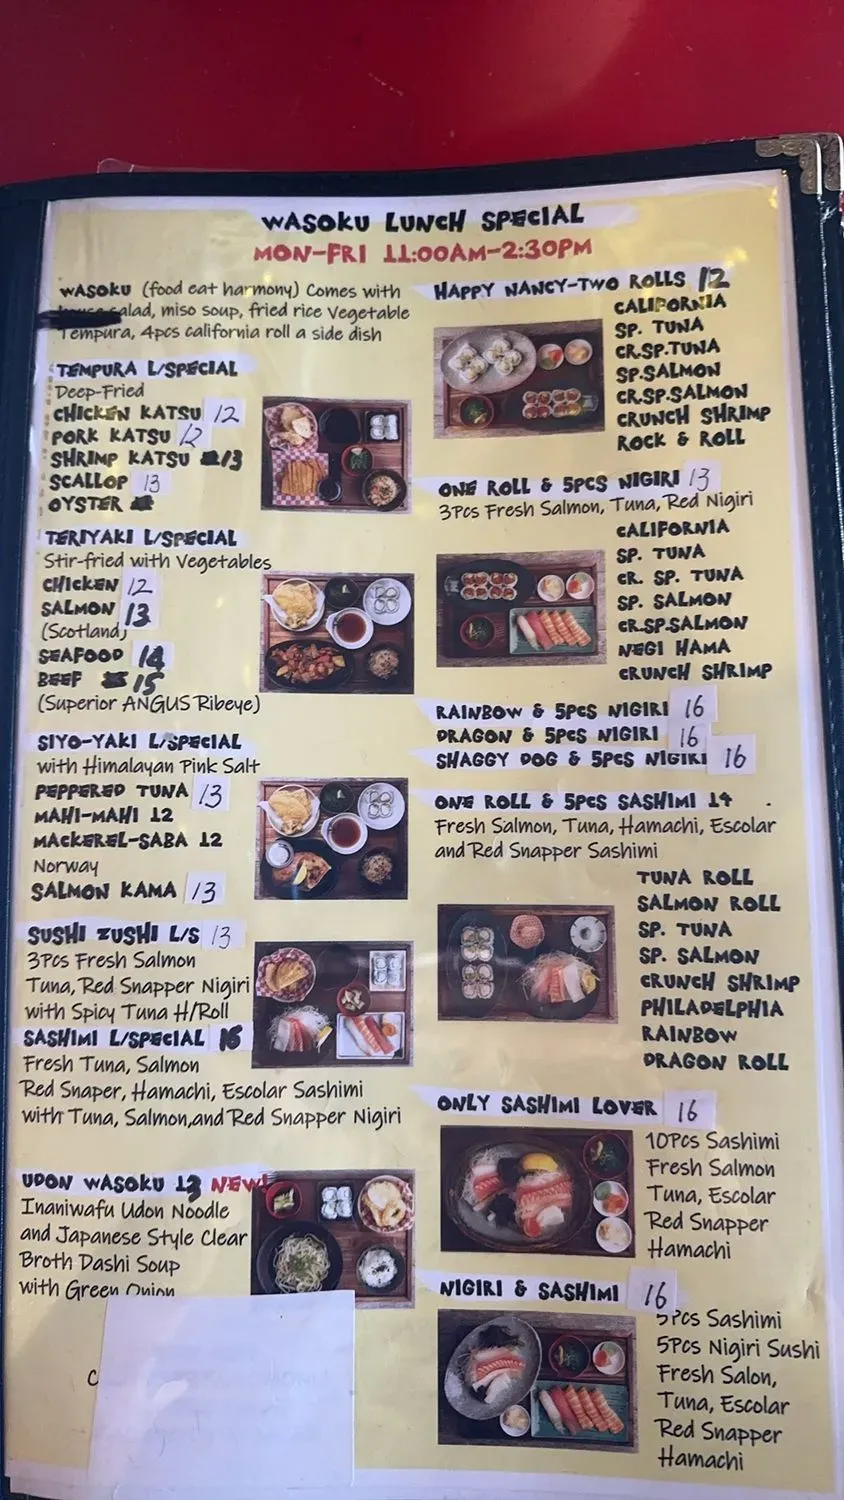 WASOKU LUNCH SPECIAL
MON-FRI 11:00AM-2:30PM
WASOKU (food eat harmony) Comes with
salad, miso soup, fried rice Vegetable
Tempura, 4pcs california roll a side dish
TEMPURA L/SPECIAL
Deep-Fried
CHICKEN KATSU 12
PORK KATSU 12
SHRIMP KATSU 13
SCALLOP 13
OYSTER
TERIYAKI L/SPECIAL
Stir-fried with Vegetables
CHICKEN 12
SALMON 13
(Scotland)
SEAFOOD 14
BEEF 15
(Superior ANGUS Ribeye)
SIYO-YAKI L/SPECIAL
with Himalayan Pink Salt
PEPPERED TUNA 13
MAHI-MAHI 12
MACKEREL-SABA 12
Norway
SALMON KAMA 13
SUSHI ZUSHI L/S 13
3Pcs Fresh Salmon
Tuna, Red Snapper Nigiri
with Spicy Tuna H/Roll
SASHIMI L/SPECIAL 16
Fresh Tuna, Salmon
Red Snaper, Hamachi, Escolar Sashimi
with Tuna, Salmon,and Red Snapper Nigiri
UDON WASOKU 13 NEW!
Inaniwafu Udon Noodle
and Japanese Style Clear
Broth Dashi Soup
with Green Onion
C
HAPPY NANCY-TWO ROLLS 12
CALIFORNIA
SP. TUNA
CR.SP.TUNA
SP.SALMON
CR.SP.SALMON
CRUNCH SHRIMP
ROCK & ROLL
ONE ROLL & 5PCS NIGIRI 13
3Pcs Fresh Salmon, Tuna, Red Nigiri
CALIFORNIA
SP. TUNA
CR. SP. TUNA
SP. SALMON
CR.SP.SALMON
NEGI HAMA
CRUNCH SHRIMP
RAINBOW & 5PCS NIGIRI 16
DRAGON & 5PCS NIGIRI 16
SHAGGY DOG & 5PCS NIGIRI 16
ONE ROLL & 5PCS SASHIMI 14
Fresh Salmon, Tuna, Hamachi, Escolar
and Red Snapper Sashimi
TUNA ROLL
SALMON ROLL
SP. TUNA
SP. SALMON
CRUNCH SHRIMP
PHILADELPHIA
RAINBOW
DRAGON ROLL
ONLY SASHIMI LOVER 16
10Pcs Sashimi
Fresh Salmon
Tuna, Escolar
Red Snapper
Hamachi
NIGIRI & SASHIMI 16
5Pcs Sashimi
5Pcs Nigiri Sushi
Fresh Salon,
Tuna, Escolar
Red Snapper
Hamachi